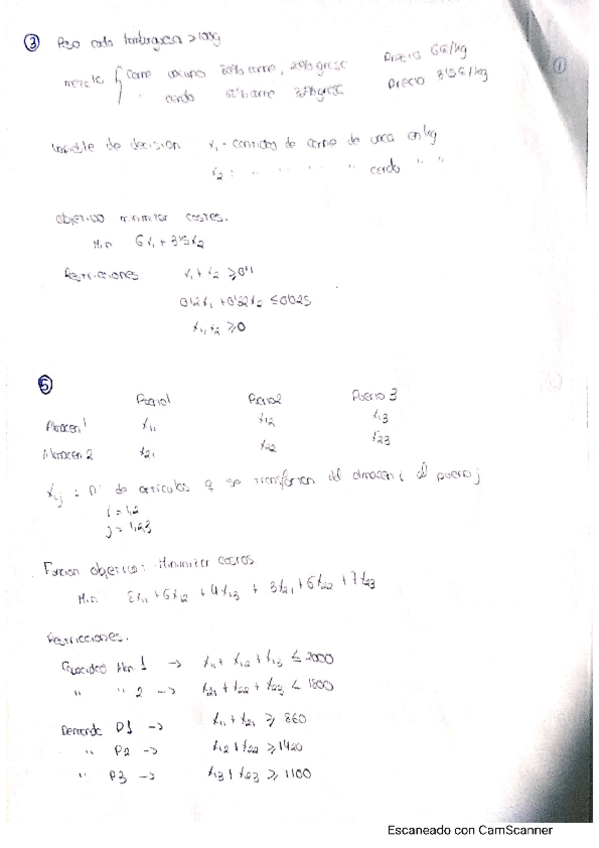 ③ Peso cada hamburguesa > 100g
mezcla { Carne vacuno 80% carne, 20% grasa Precio 6€/kg
" cerdo 68% carne 32% grasa Precio 3'5€/kg
Variable de decision x₁ = cantidad de carne de vaca en kg
x₂ : " " " " cerdo " "
Objetivo minimizar costes.
Min 6x₁ + 3'5x₂
Restricciones x₁ + x₂ ≥ 0'1
0'2x₁ + 0'32x₂ ≤ 0'025
x₁, x₂ ≥ 0
⑤
Puerto 1 Puerto 2 Puerto 3
Almacen 1 x₁₁ x₁₂ x₁₃
Almacen 2 x₂₁ x₂₂ x₂₃
xᵢⱼ : nº de articulos q se transfieren del almacen i al puerto j
i = 1,2
j = 1,2,3
Funcion objetivo: Minimizar costos
Min 8x₁₁ + 6x₁₂ + 4x₁₃ + 3x₂₁ + 6x₂₂ + 7x₂₃
Restricciones.
Capacidad Alm 1 → x₁₁ + x₁₂ + x₁₃ ≤ 2000
" " 2 → x₂₁ + x₂₂ + x₂₃ ≤ 1800
Demanda P1 → x₁₁ + x₂₁ ≥ 860
" P2 → x₁₂ + x₂₂ ≥ 1420
" P3 → x₁₃ + x₂₃ ≥ 1100
Escaneado con CamScanner